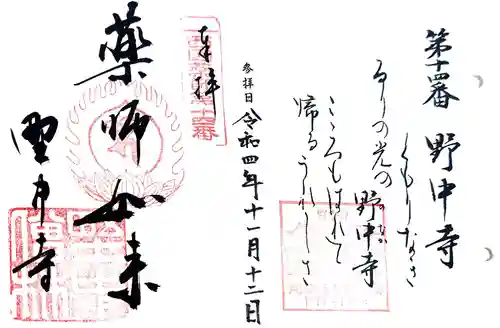 第十四番 野中寺
くもりなき
るりの光の
野中寺
こころもはれて
帰るうれしさ
参拝日 令和四年十一月十二日
奉拝
薬師如来
野中寺